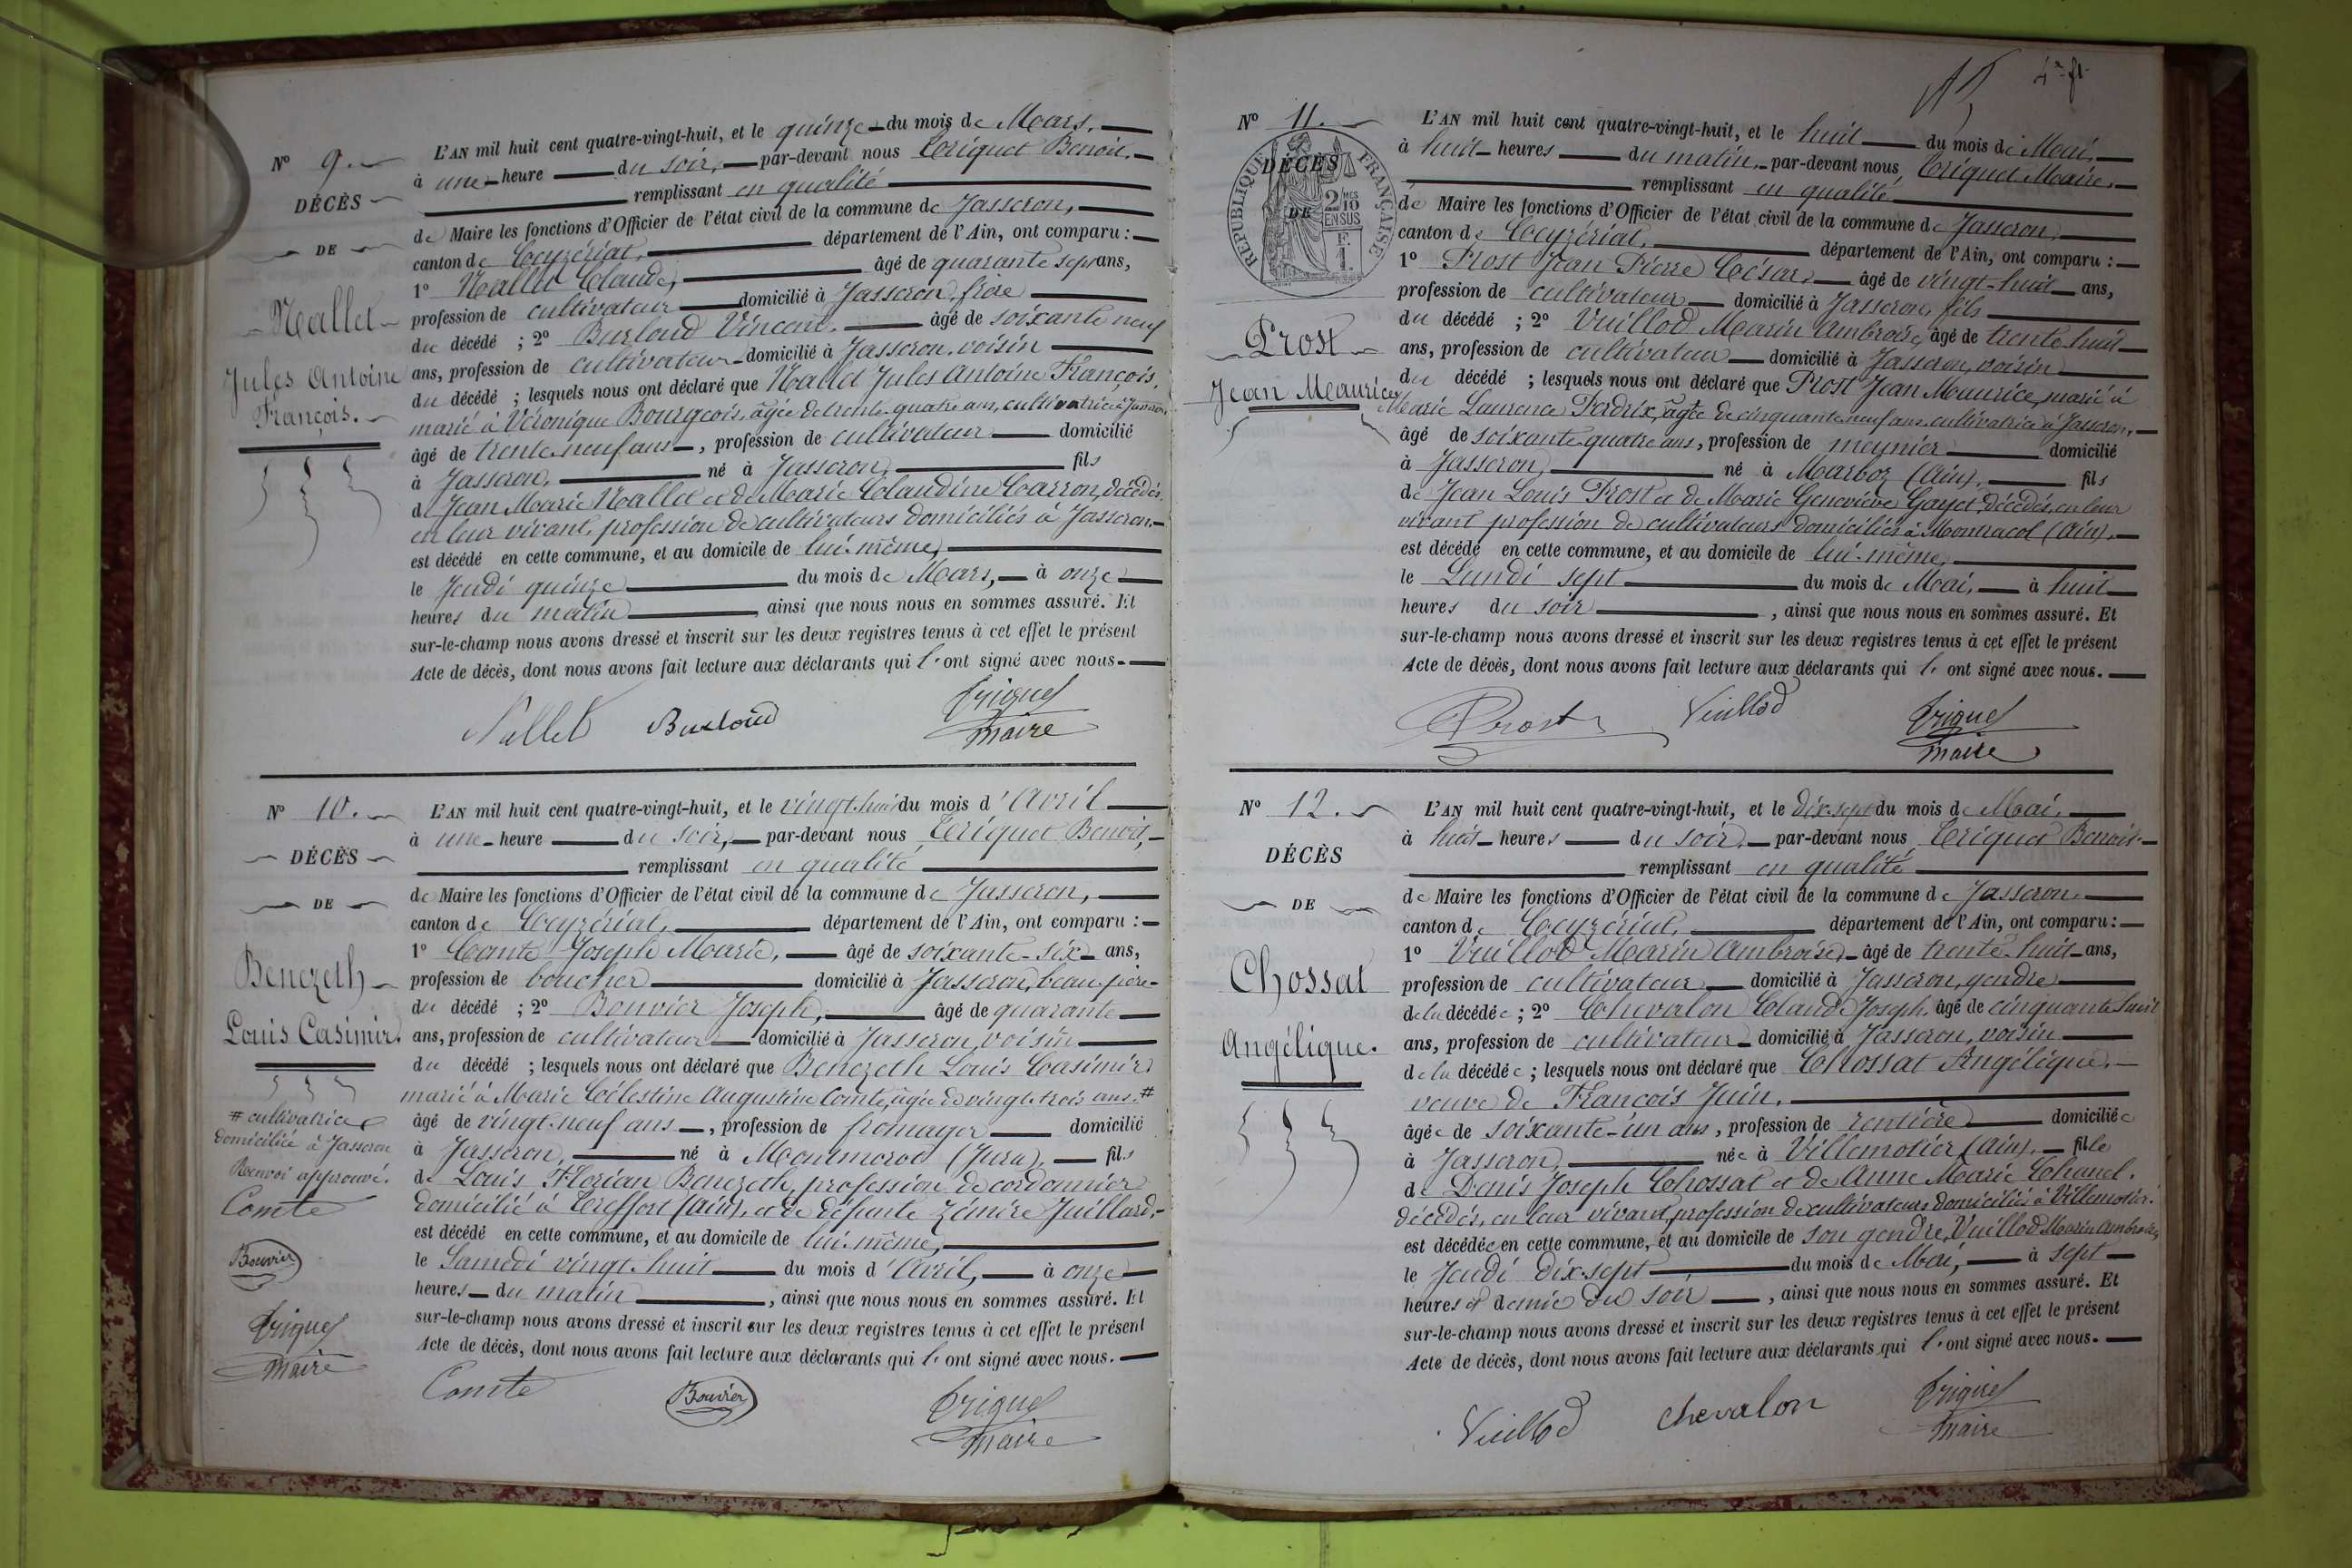 N° 9.
DÉCÈS
DE
Nallet
Jules Antoine
François.
L'AN mil huit cent quatre-vingt-huit, et le quinze du mois de Mars,
à une heure du soir, par-devant nous Triquet Benoit,
remplissant en qualité
de Maire les fonctions d'Officier de l'état civil de la commune de Jasseron,
canton de Ceyzériat, département de l'Ain, ont comparu :
1° Nallet Claude, âgé de quarante sept ans,
profession de cultivateur domicilié à Jasseron, frère
du décédé ; 2° Burloud Vincent, âgé de soixante neuf
ans, profession de cultivateur domicilié à Jasseron, voisin
du décédé ; lesquels nous ont déclaré que Nallet Jules Antoine François,
marié à Véronique Bourgeois, âgée de trente quatre ans, cultivatrice à Jasseron
âgé de trente neuf ans, profession de cultivateur domicilié
à Jasseron, né à Jasseron, fils
de Jean Marie Nallet et de Marie Claudine Carron, décédés,
en leur vivant, profession de cultivateurs domiciliés à Jasseron.
est décédé en cette commune, et au domicile de lui-même,
le Jeudi quinze du mois de Mars, à onze
heures du matin, ainsi que nous nous en sommes assuré. Et
sur-le-champ nous avons dressé et inscrit sur les deux registres tenus à cet effet le présent
Acte de décès, dont nous avons fait lecture aux déclarants qui l'ont signé avec nous.
Nallet Burloud Triquet
maire
N° 10.
DÉCÈS
DE
Benezeth
Louis Casimir.
# cultivatrice
domiciliée à Jasseron
Renvoi approuvé.
Comte
Bouvier
Triquet
maire
L'AN mil huit cent quatre-vingt-huit, et le vingt-huit du mois d'Avril
à une heure du soir, par-devant nous Triquet Benoit,
remplissant en qualité
de Maire les fonctions d'Officier de l'état civil de la commune de Jasseron,
canton de Ceyzériat, département de l'Ain, ont comparu :
1° Comte Joseph Marie, âgé de soixante-six ans,
profession de boucher domicilié à Jasseron, beau-père
du décédé ; 2° Bouvier Joseph, âgé de quarante
ans, profession de cultivateur domicilié à Jasseron, voisin
du décédé ; lesquels nous ont déclaré que Benezeth Louis Casimir
marié à Marie Célestine Augustine Comte, âgée de vingt-trois ans #
âgé de vingt-neuf ans, profession de fromager domicilié
à Jasseron, né à Montmorot (Jura), fils
de Louis Florian Benezeth, profession de cordonnier
domicilié à Treffort (Ain), et de défunte Zémire Juillard,
est décédé en cette commune, et au domicile de lui-même,
le Samedi vingt-huit du mois d'Avril, à onze
heures du matin, ainsi que nous nous en sommes assuré. Et
sur-le-champ nous avons dressé et inscrit sur les deux registres tenus à cet effet le présent
Acte de décès, dont nous avons fait lecture aux déclarants qui l'ont signé avec nous.
Comte Bouvier Triquet
maire
4e ft
N° 11.
DÉCÈS
DE
RÉPUBLIQUE FRANÇAISE
2 MES
10
EN SUS
F.
1.
Prost
Jean Maurice
L'AN mil huit cent quatre-vingt-huit, et le huit du mois de Mai,
à huit heures du matin, par-devant nous Triquet Maire,
remplissant en qualité
de Maire les fonctions d'Officier de l'état civil de la commune de Jasseron,
canton de Ceyzériat, département de l'Ain, ont comparu :
1° Prost Jean Pierre César, âgé de vingt-huit ans,
profession de cultivateur domicilié à Jasseron, fils
du décédé ; 2° Vuillod Marin Ambroise, âgé de trente huit
ans, profession de cultivateur domicilié à Jasseron, voisin
du décédé ; lesquels nous ont déclaré que Prost Jean Maurice, marié à
Marie Laurence Perdrix, âgée de cinquante neuf ans, cultivatrice à Jasseron,
âgé de soixante quatre ans, profession de meunier domicilié
à Jasseron, né à Marboz (Ain), fils
de Jean Louis Prost et de Marie Geneviève Gayet, décédés, en leur
vivant profession de cultivateurs domiciliés à Montracol (Ain),
est décédé en cette commune, et au domicile de lui-même,
le Lundi sept du mois de Mai, à huit
heures du soir, ainsi que nous nous en sommes assuré. Et
sur-le-champ nous avons dressé et inscrit sur les deux registres tenus à cet effet le présent
Acte de décès, dont nous avons fait lecture aux déclarants qui l'ont signé avec nous.
Prost Vuillod Triquet
maire
N° 12.
DÉCÈS
DE
Chossat
Angélique.
L'AN mil huit cent quatre-vingt-huit, et le dix-sept du mois de Mai,
à huit heures du soir, par-devant nous Triquet Benoit,
remplissant en qualité
de Maire les fonctions d'Officier de l'état civil de la commune de Jasseron,
canton de Ceyzériat, département de l'Ain, ont comparu :
1° Vuillod Marin Ambroise, âgé de trente-huit ans,
profession de cultivateur domicilié à Jasseron, gendre
de la décédée ; 2° Chevalon Claude Joseph, âgé de cinquante huit
ans, profession de cultivateur domicilié à Jasseron, voisin
de la décédée ; lesquels nous ont déclaré que Chossat Angélique,
veuve de François Juin,
âgée de soixante-un ans, profession de rentière domiciliée
à Jasseron, née à Villemotier (Ain), fille
de Denis Joseph Chossat et de Anne Marie Chanel,
décédés, en leur vivant, profession de cultivateurs domiciliés à Villemotier.
est décédée en cette commune, et au domicile de son gendre, Vuillod Marin Ambroise,
le Jeudi dix-sept du mois de Mai, à sept
heures et demie du soir, ainsi que nous nous en sommes assuré. Et
sur-le-champ nous avons dressé et inscrit sur les deux registres tenus à cet effet le présent
Acte de décès, dont nous avons fait lecture aux déclarants qui l'ont signé avec nous.
Vuillod Chevalon Triquet
maire